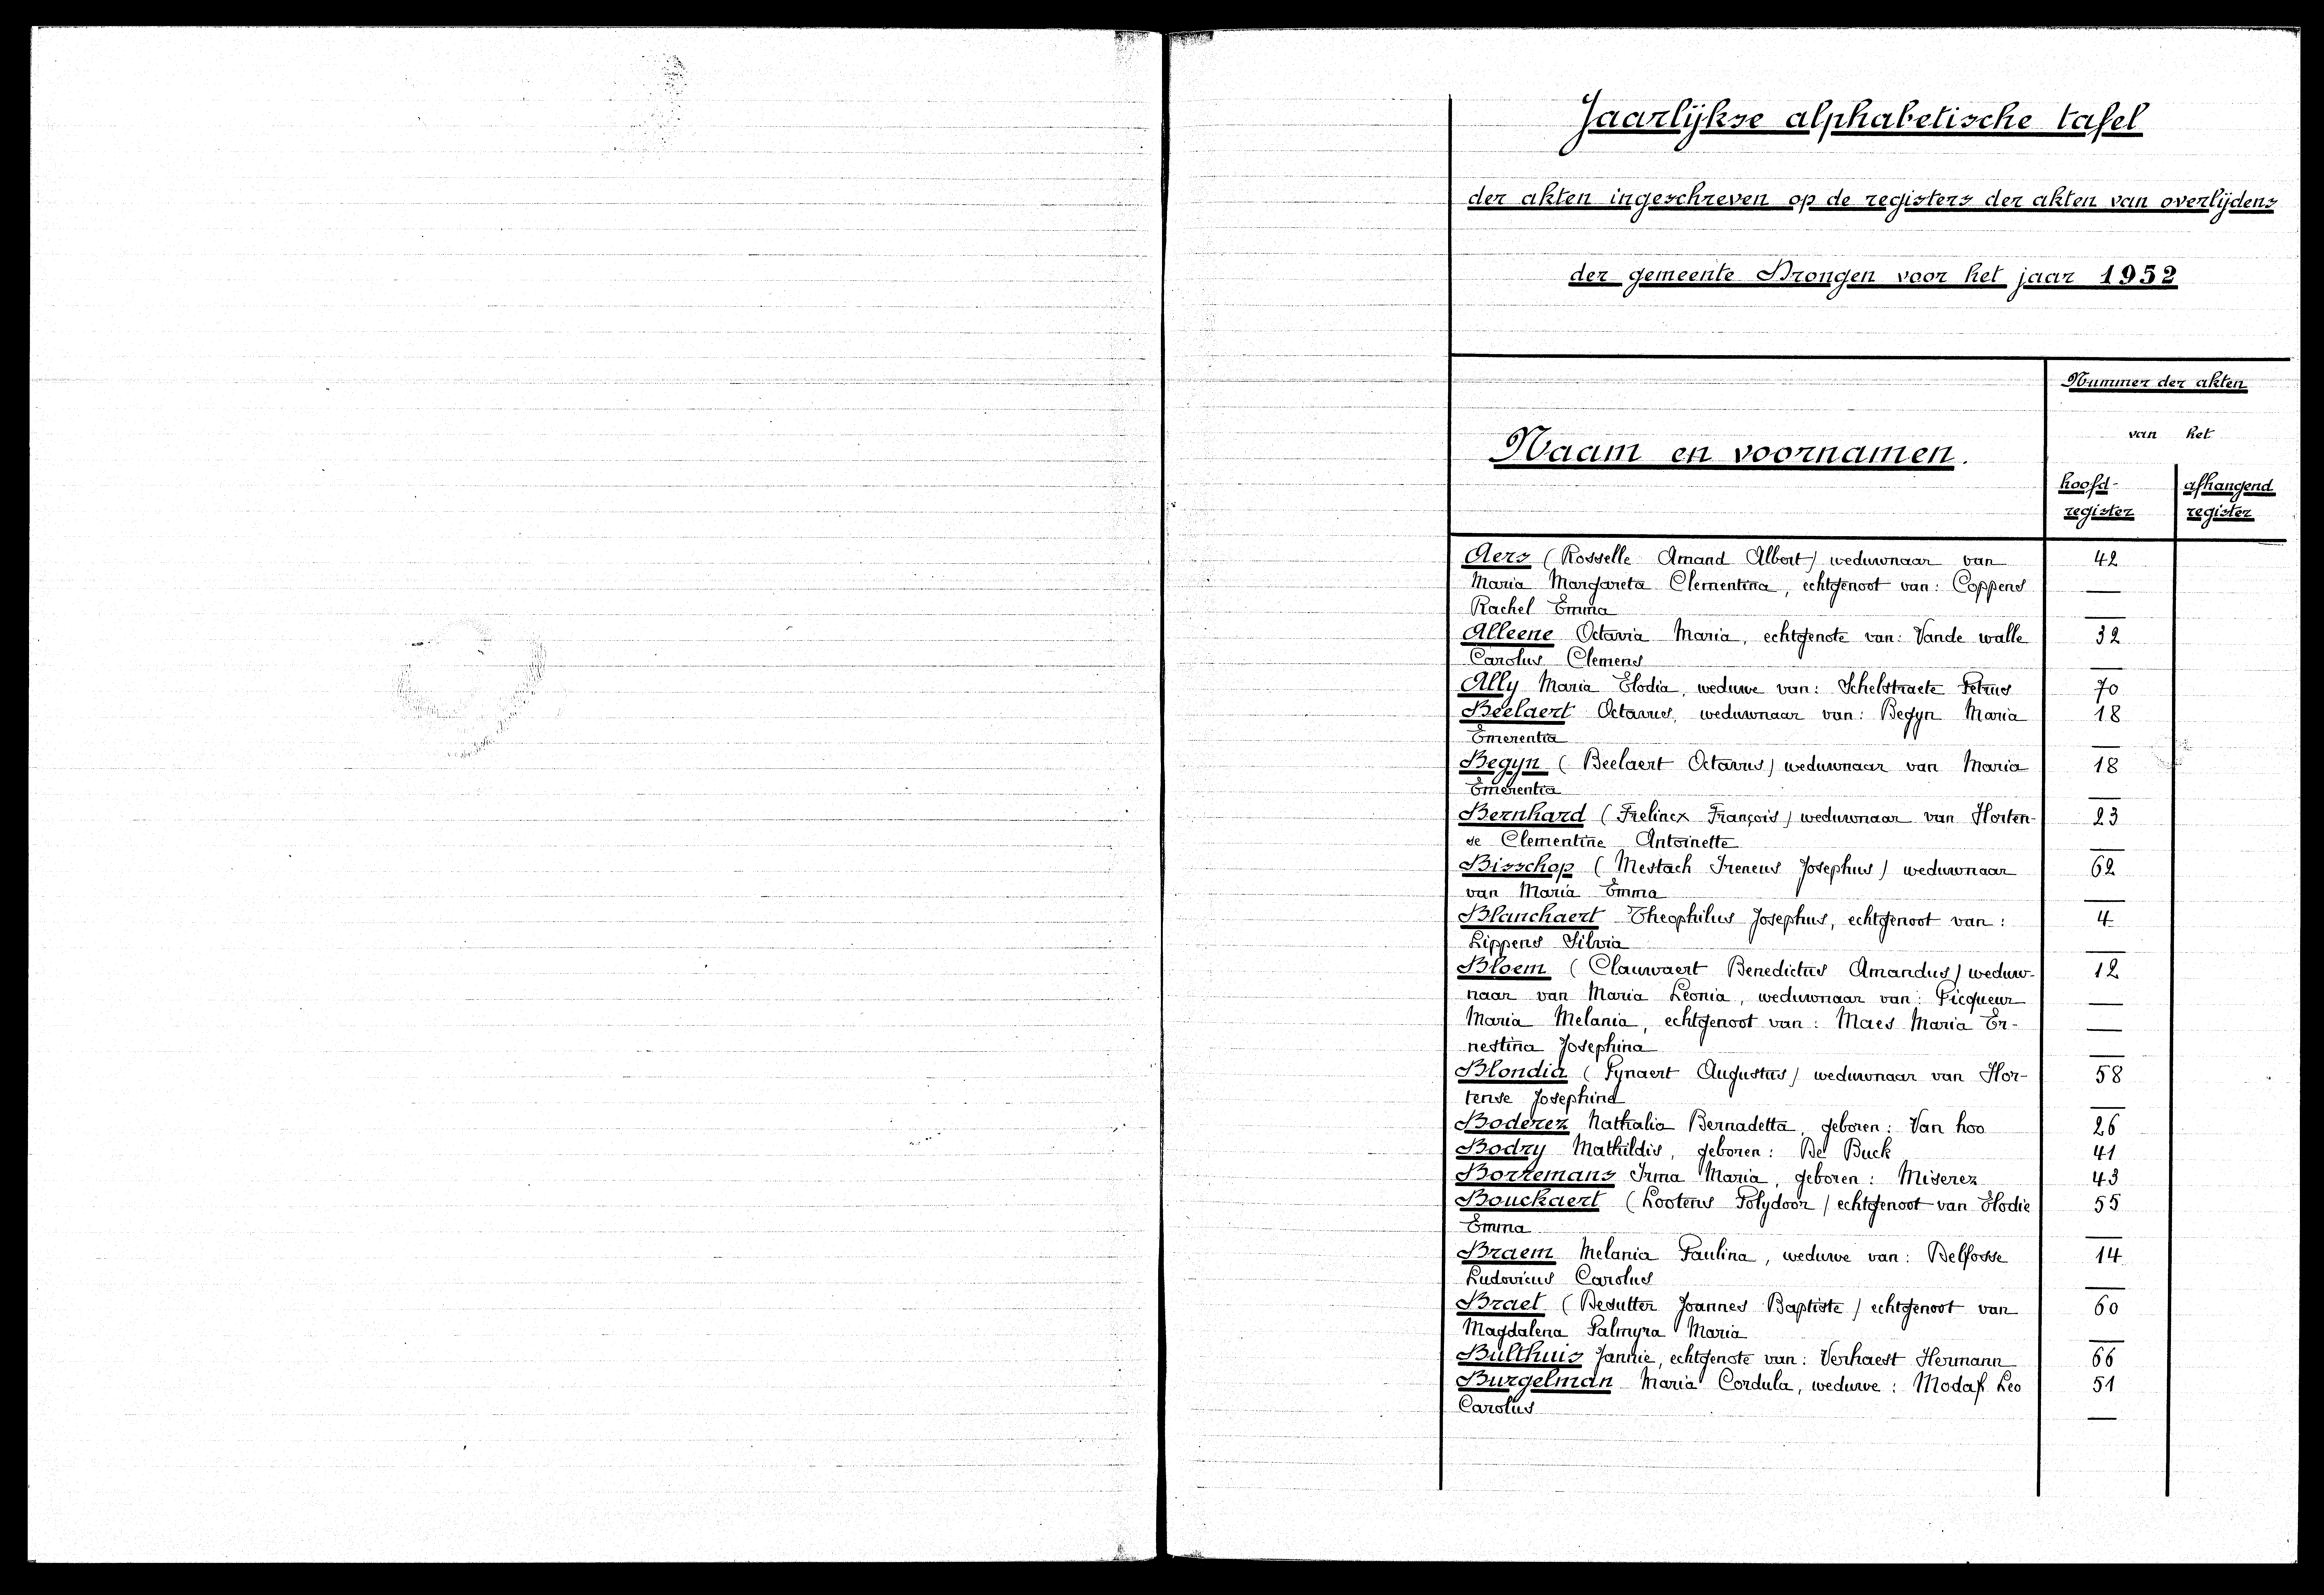 Jaarlijkse alphabetische tafel
der akten ingeschreven op de registers der akten van overlijdens
der gemeente Drongen voor het jaar 1952
Nummer der akten
van het
Naam en voornamen.
hoofd- afhangend
register register
Aers (Rosselle Amand Albert) weduwnaar van 42
Maria Margareta Clementina, echtgenoot van: Coppens —
Rachel Emma —
Alleene Octavia Maria, echtgenote van: Vande walle 32
Carolus Clemens —
Ally Maria Elodia, weduwe van: Schelstraete Petrus 70
Beelaert Octavus, weduwnaar van: Begyn Maria 18
Emerentia —
Begyn (Beelaert Octavus) weduwnaar van Maria 18
Emerentia —
Bernhard (Frelinex François) weduwnaar van Horten- 23
se Clementine Antoinette —
Bisschop (Mestach Ireneus Josephus) weduwnaar 62
van Maria Emma —
Blanchaert Theophilus Josephus, echtgenoot van: 4
Lippens Silvia —
Bloem (Clauwaert Benedictus Amandus) weduw- 12
naar van Maria Leonia, weduwnaar van: Picqueur —
Maria Melania, echtgenoot van: Maes Maria Er- —
nestina Josephina —
Blondia (Fynaert Augustus) weduwnaar van Hor- 58
tense Josephind —
Boderez Nathalia Bernadetta, geboren: Van hoo 26
Bodry Mathildis, geboren: De Buck 41
Borremans Irma Maria, geboren: Miserez 43
Bouckaert (Lootens Polydoor) echtgenoot van Elodie 55
Emma —
Braem Melania Paulina, weduwe van: Delfosse 14
Ludovicus Carolus —
Braet (Desutter Joannes Baptiste) echtgenoot van 60
Magdalena Palmyra Maria —
Bulthuis Jannie, echtgenote van: Verhaest Hermann 66
Burgelman Maria Cordula, weduwe: Modaf Leo 51
Carolus —